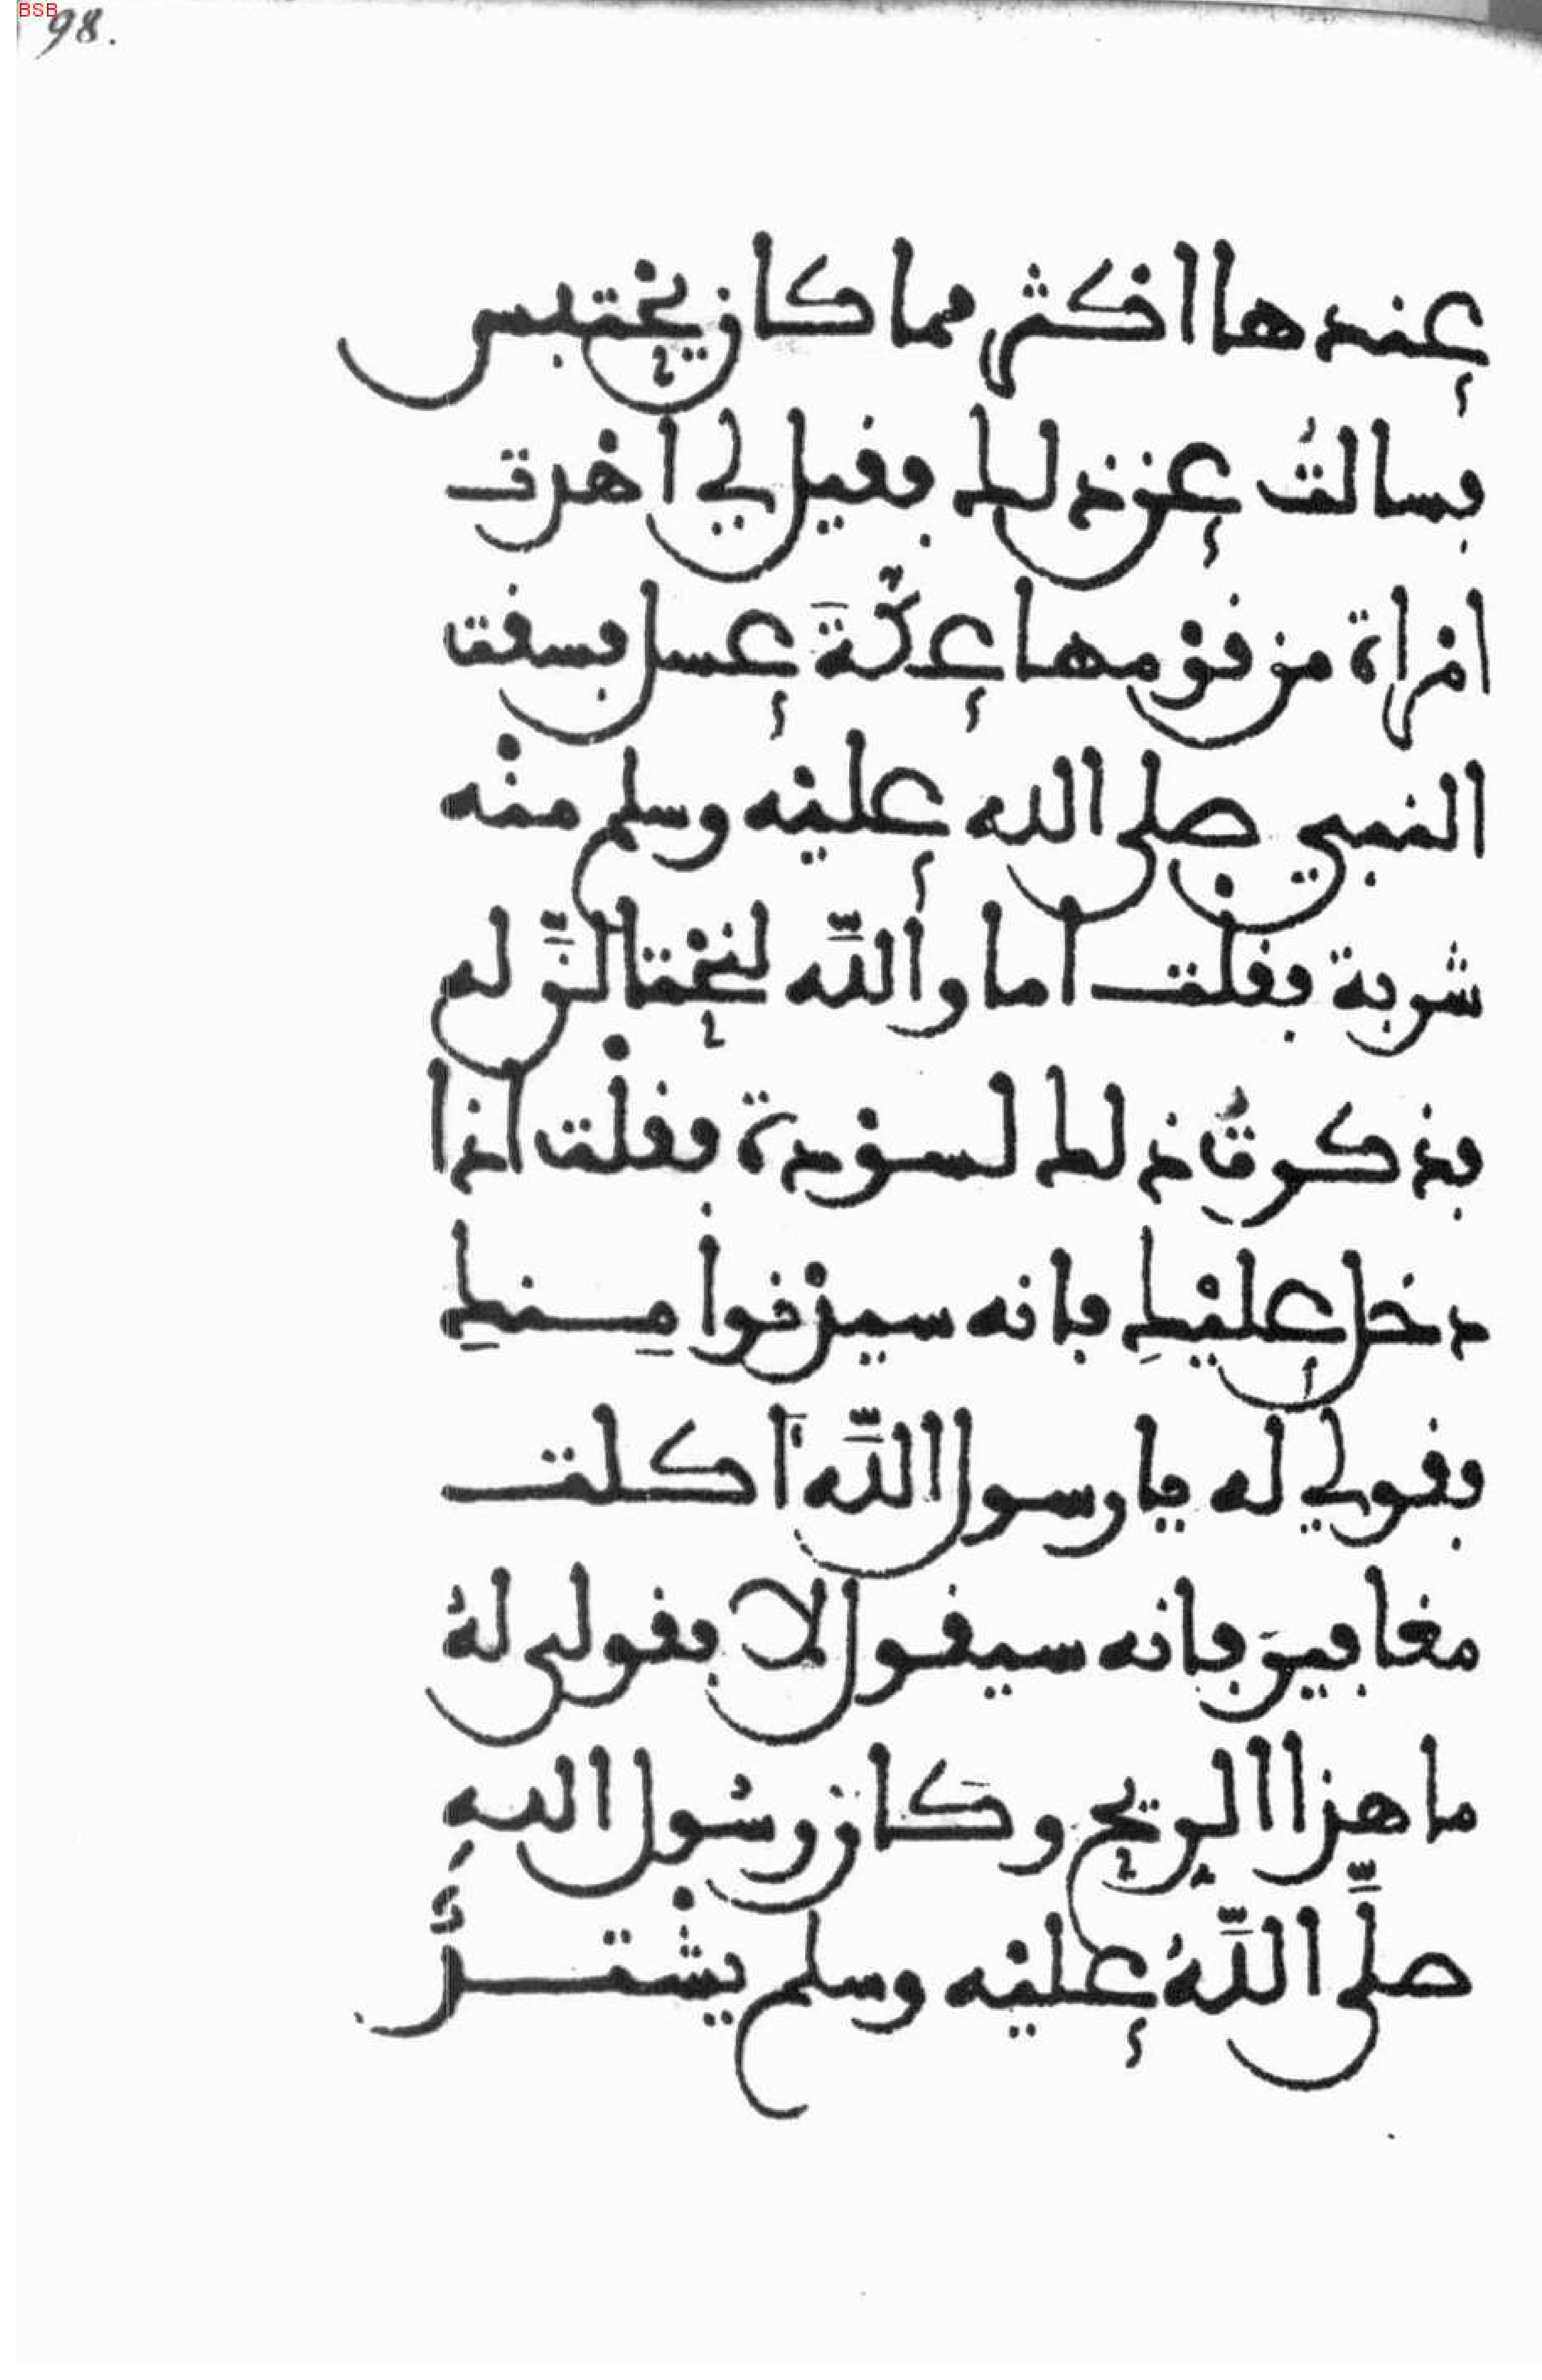 BSB
98.
عندها اكثر مما كان يحتبس
فسالتُ عن ذلك فقيل لي اهدت
امْراة من قوْمها عكّةَ عسل فسقت
النبي صلى الله عليْه وسلم منْه
شربة فقلت اما والله لنحْتالنّ له
فذكرتُ ذلك لسوْدة فقلْت اذا
دخل عليْكِ فانه سيدْنوا مِنكِ
فقولي له يا رسول اللّه أكلت
مغافيرَ فانه سيقول لا فقولي لهُ
ما هذا الريح وكان رسُول اللهِ
صلَّى اللّهُ عليْه وسلم يشْتدُّ